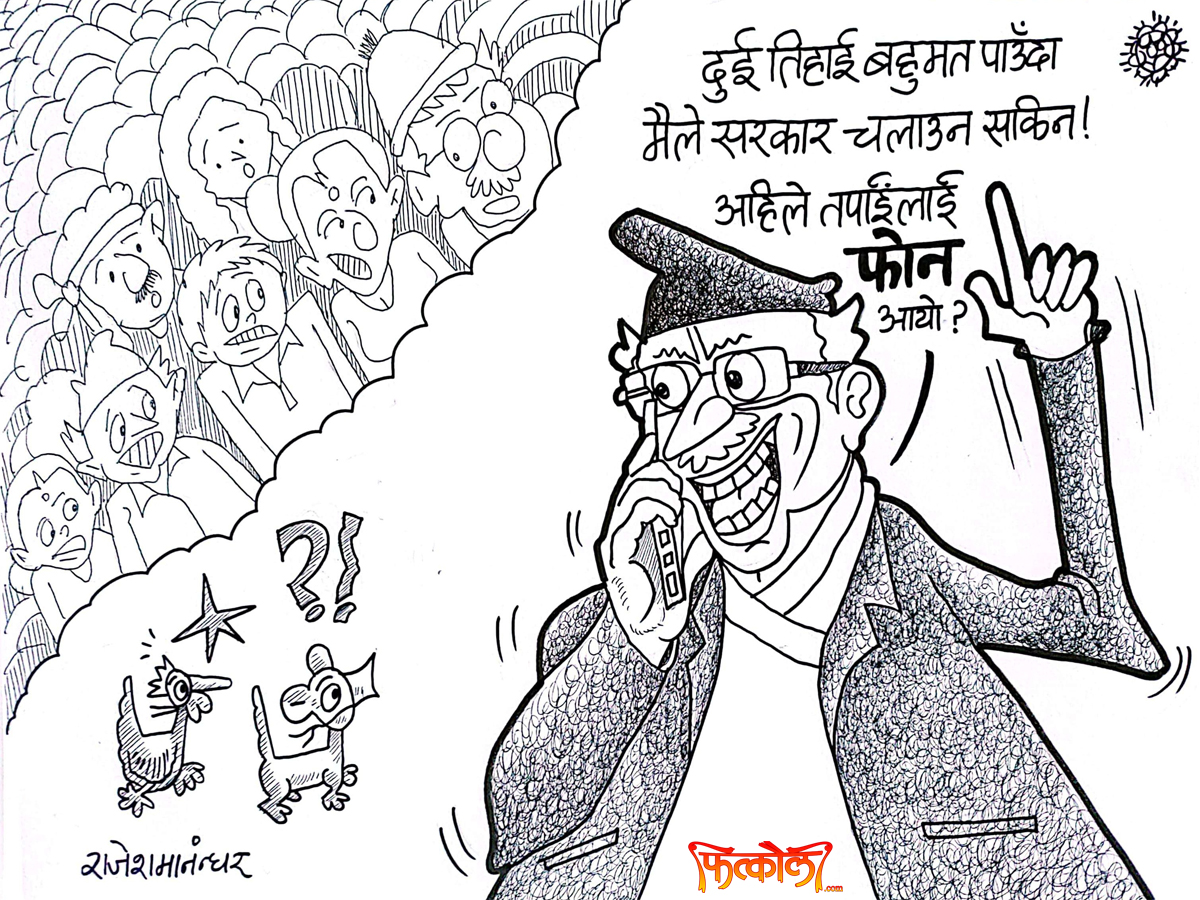 दुई तिहाई बहुमत पाउँदा
मैले सरकार चलाउन सकिन!
अहिले तपाईंलाई
फोन
आयो?
?!
राजेशमानन्धर
फत्कौला
.com